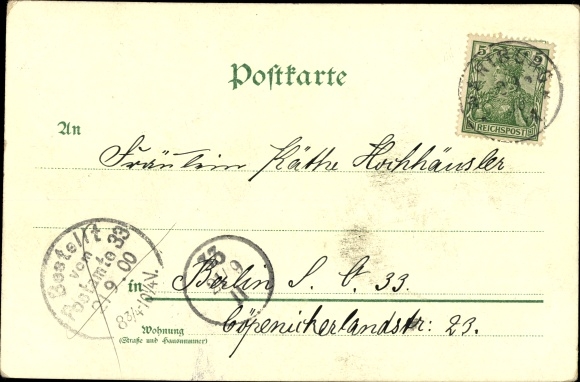 Postkarte
5 5
REICHSPOST
An
Fräulein Käthe Hochhäusler
Bestellt
vom
Postamte 33
2/9.00
8¾-10¼V.
33
in Berlin S. O. 33.
Cöpenickerlandstr: 23.
Wohnung
(Straße und Hausnummer)